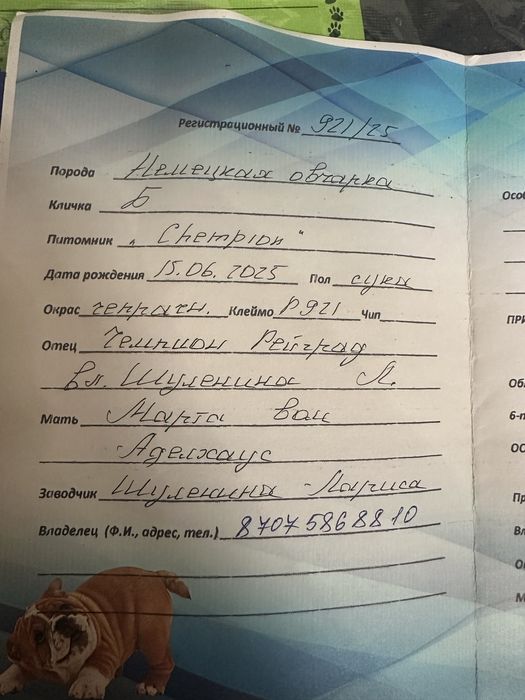 Регистрационный № 921/25
Порода Немецкая овчарка
Кличка Б
Питомник „Chempion"
Дата рождения 15.06.2025 Пол сука
Окрас чепрачн. Клеймо Р921 Чип
Отец Чемпион Рейград
вл. Шуленина Л.
Мать Марта ван
Аделхаус
Заводчик Шуленина Лариса
Владелец (Ф.И., адрес, тел.) 87075868810
Осо
ПРИ
Об
6-п
ОС
Пр
Вл
О
М